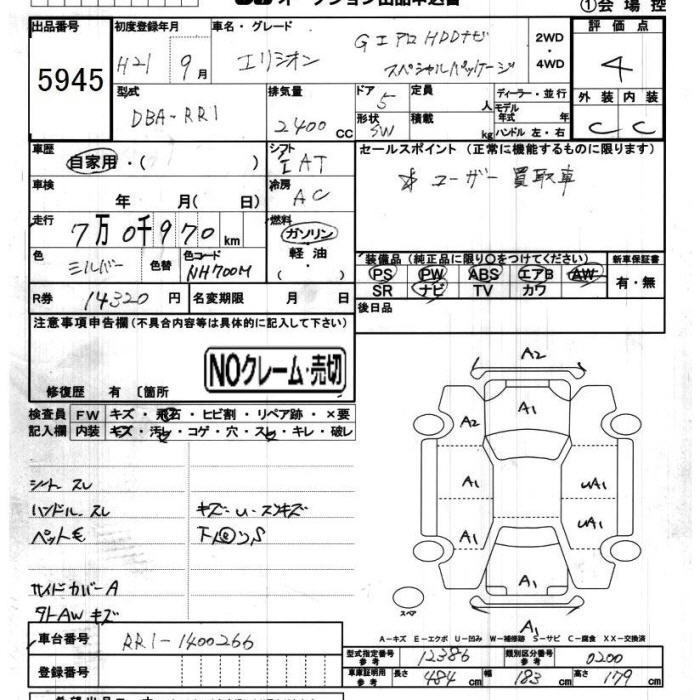 オークション出品申込書
①会場控
出品番号 初度登録年月 車名・グレード 評価点
5945
H21 9月
エリシオン
Gエアロ HDDナビ
スペシャルパッケージ
2WD
・
4WD
4
型式 排気量 ドア 定員 ディーラー・並行
DBA-RR1
2400 cc
5
人
モデル年式 年
形状 積載
SW
kg
ハンドル 左・右
外装 内装
C C
車歴 シフト セールスポイント (正常に機能するものに限ります)
自家用・( )
IAT
☆ ユーザー買取車
車検 冷房
年 月( 日)
AC
走行 燃料
7万0千970km
ガソリン
軽油
・( )
色 色替 色コード
シルバー
NH700M
装備品(純正品に限り○をつけてください) 新車保証書
PS PW ABS エアB AW
SR ナビ TV カワ
有・無
R券 14320円 名変期限 月 日
後日品
注意事項申告欄(不具合内容等は具体的に記入して下さい)
NOクレーム・売切
修復歴 有 〔箇所
検査員 FW キズ・飛石・ヒビ割・リペア跡・×要
記入欄 内装 キズ・汚レ・コゲ・穴・スレ・キレ・破レ
シートスレ
ハンドルスレ
ペット毛
キズ・U・スリキズ
サイドカバーA
タトAWキズ
A2
A1
A2
A1
UA1
A1
UA1
A1
A1
スペア
A-キズ E-エクボ U-凹み W-補修跡 S-サビ C-腐食 XX-交換済
車台番号 RR1-1400266
登録番号
型式指定番号 参考 12386 類別区分番号 参考 0200
車庫証明用 参考 長さ 484cm 幅 183cm 高さ 179cm